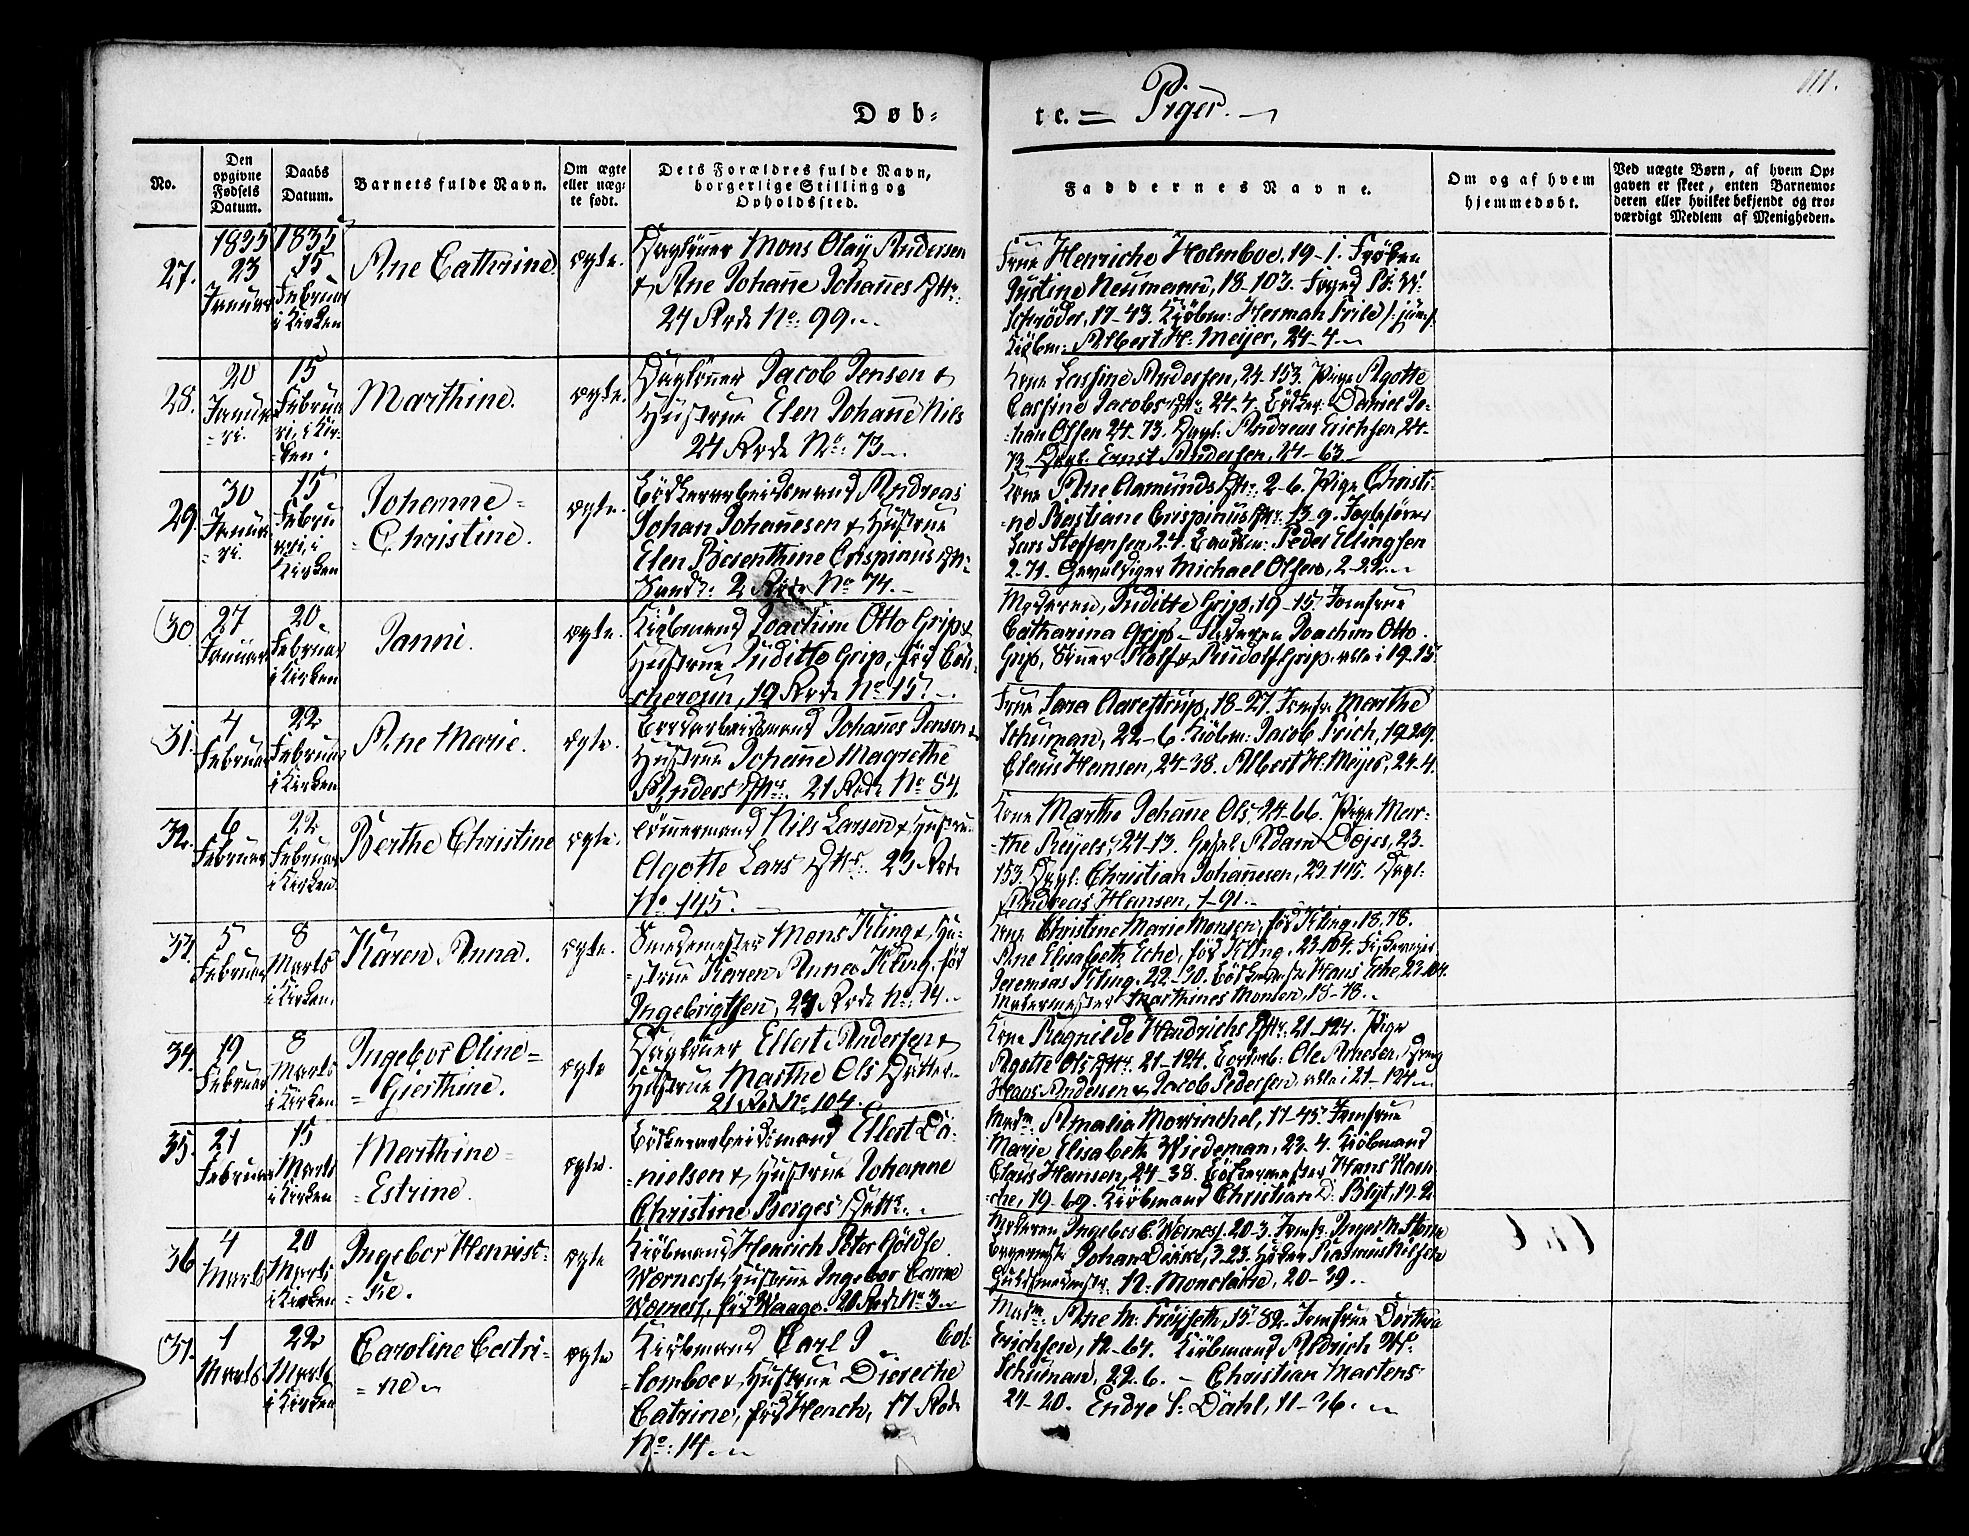 111.
Døb-
te. = Piger.
No.
Den opgivne Fødsels Datum.
Daabs Datum.
Barnets fulde Navn.
Om ægte eller uæg-te født.
Dets Forældres fulde Navn, borgerlige Stilling og Opholdssted.
Faddernes Navne.
Om og af hvem hjemmedøbt.
Ved uægte Børn, af hvem Op-gaven er skeet, enten Barnemo-deren eller hvilket bekjendt og tro-værdigt Medlem af Menigheden.
27.
1835
23
Januar
1835
15
Februar
i Kirken
Ane Cathrine
ægte.
Dagløner Mons Olay Andersen
& Ane Johanne Johannes Dtr:
24 Rode No: 99.
Frue Henriche Holmboe, 19-1. Frøken
Justine Neumann, 18-103. Foged
Schrøder, 17-43. Kjøbm: Herman Friele /: jun:/
Kjøbm: Albert H. Meijer, 24-4.
28.
20
Janua-
ri.
15
Februa-
ri, i Kir-
ken.
Marthine.
ægte.
Dagløner Jacob Jensen &
Hustrue Elen Johanne Nils
24 Rode No: 73.
Kone Andersen, 24-153. Pige Agotte
Jacobs Dtr. 24-4. Bødker: Daniel Jo-
han Olsen 24-73. Dagl: Andreas Erichsen, 24-
73. Dagl: Ernst Andersen, 24-63
29.
30
Janua-
ri.
15
Febru
ari, i
Kirken
Johanne
Christine.
ægte.
Bødkerarbeidsmand Andreas
Johan Johannesen & Hustrue
Elen Berenthine Crispinus Dtr:
2 Rode No 74.
Kone Ane Aamunds Dtr. 2-6. Pige Christi-
ne Bastiane Crispinus Dtr. 13-9.
Lars Steffensen, 2-4. Peder Ellingsen
2-71. Michael Olsen, 2-22.
30
27
Januar
20
Februar
i Kirken
Janni.
ægte.
Kjøbmand Joachim Otto Grip &
Hustrue Juditte Grip, fød Böt-
cheroun, 19 Rode No 15.
Moderen, Juditte Grip, 19-15. Jomfrue
Catharina Grip - Faderen Joachim Otto
Grip, Rolf & Rudolf Grip, alle i 19-15.
31.
4
Februar
22
Februar
i Kirken
Ane Marie.
ægte.
Johannes Jensen &
Hustrue Johanne Magrethe
Anders Dtr. 21 Rode No 54.
Frue Sara Aarestrup, 18-27. Jomfr: Marthe
Schuman, 22-6. Kjøbm: Jacob Frich, 19-29.
Claus Hansen, 24-38. Albert H. Meijer, 24-4.
32.
6
Februar
22
Februar
i Kirken.
Berthe Christine
ægte.
Tømmermand Nils Larsen & Hustrue
Agotte Lars Dtr. 23 Rode
No 145.
Kone Marthe Johanne Ols, 24-66. Pige Mar-
the 24-13. Adam 23-
153. Dagl: Christian Johannesen, 23-145. Dagl:
Andreas Hansen, 1-91.
33.
5
Februar
8
Marts
i Kirken.
Karen Anna.
ægte.
Smedemester Mons Kling & Hu-
strue Karen Anna Kling, fød
Ingebrigtsen, 24 Rode No: 14.
Kone Christine Marie Monsen, fød Kling, 18-78.
Ane Elisabeth Eche, fød Kling, 23-104.
Jeremias Kling, 22-30. Hans Eche, 23-104.
Marthines Monsen, 18-78.
34.
19
Februar
8
Marts
i Kirken
Ingebor Oline
Gjerthine.
ægte
Dagløner Ellert Andersen &
Hustrue Marthe Ols Datter.
21 Rode No 104.
Kone Ragnilde Hendrichs Dtr. 21-124. Pige
Agotte Ols Dtr. 21-124. Ole Arnesen,
Hans Andersen & Jacob Pedersen, alle i 21-124.
35.
21
Februar
15
Marts
i Kirken
Marthine
Estrine.
ægte.
Bødkerarbeidsmand Ellert Da-
nielsen & Hustrue Johanne
Christine Børges Datter.
Madm: Amalia Mowinchel, 17-45. Jomfrue
Marie Elisabeth Wiedeman, 22-4. Kjøbmand
Claus Hansen, 24-38. Bødkermester Hans
che, 19-69. Kjøbmand Christian D: Blijt, 19-2
36
4
Marts
20
Marts
i Kirken
Ingebor Henric-
ke.
ægte
Kjøbmand Henrich Peter Gøldse
Wernes & Hustrue Ingebor
Wernes, fød Waage. 20 Rode No 3.
Moderen Ingebor C. Wernes, 20-3. Jomfr: Inger M.
Johan 3-23. Rasmus
N. Monclaire, 20-39.
37.
1
Marts
22
Marts
i Kirken
Caroline Catri-
ne
ægte
Kjøbmand Carl J Col-
lomboe & Hustrue Dierecke
Catrine, fød Hench, 17 Rode
No: 14.
Madm: Ane M. Frøyseth, 15-82. Jomfrue Dorthea
Erichsen, 12-64. Kjøbmand Aldrich W:
Schuman, 22-6. - Christian Martens
24-20. Endre S: Dahl, 11-36.